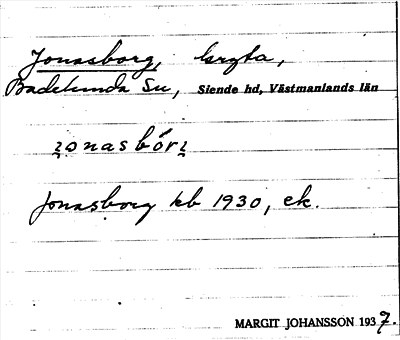 Jonasborg, bryta,
Badelunda Sn, Siende hd, Västmanlands län
jonasbórj
Jonasborg kb 1930, ek.
MARGIT JOHANSSON 1937.